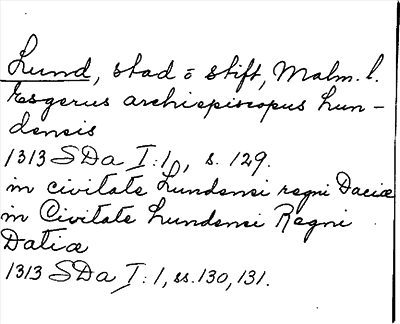 Lund, stad o stift, Malm. l.
Esgerus archiepiscopus Lun-
densis
1313 SDa I:1, s. 129.
in civitate Lundensi regni Daciæ
in Civitate Lundensi Regni
Datiæ
1313 SDa I:1, ss. 130, 131.